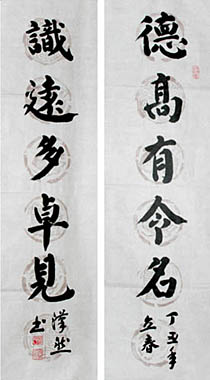 德高有令名
丁丑年
立春
識遠多卓見
漢然
书